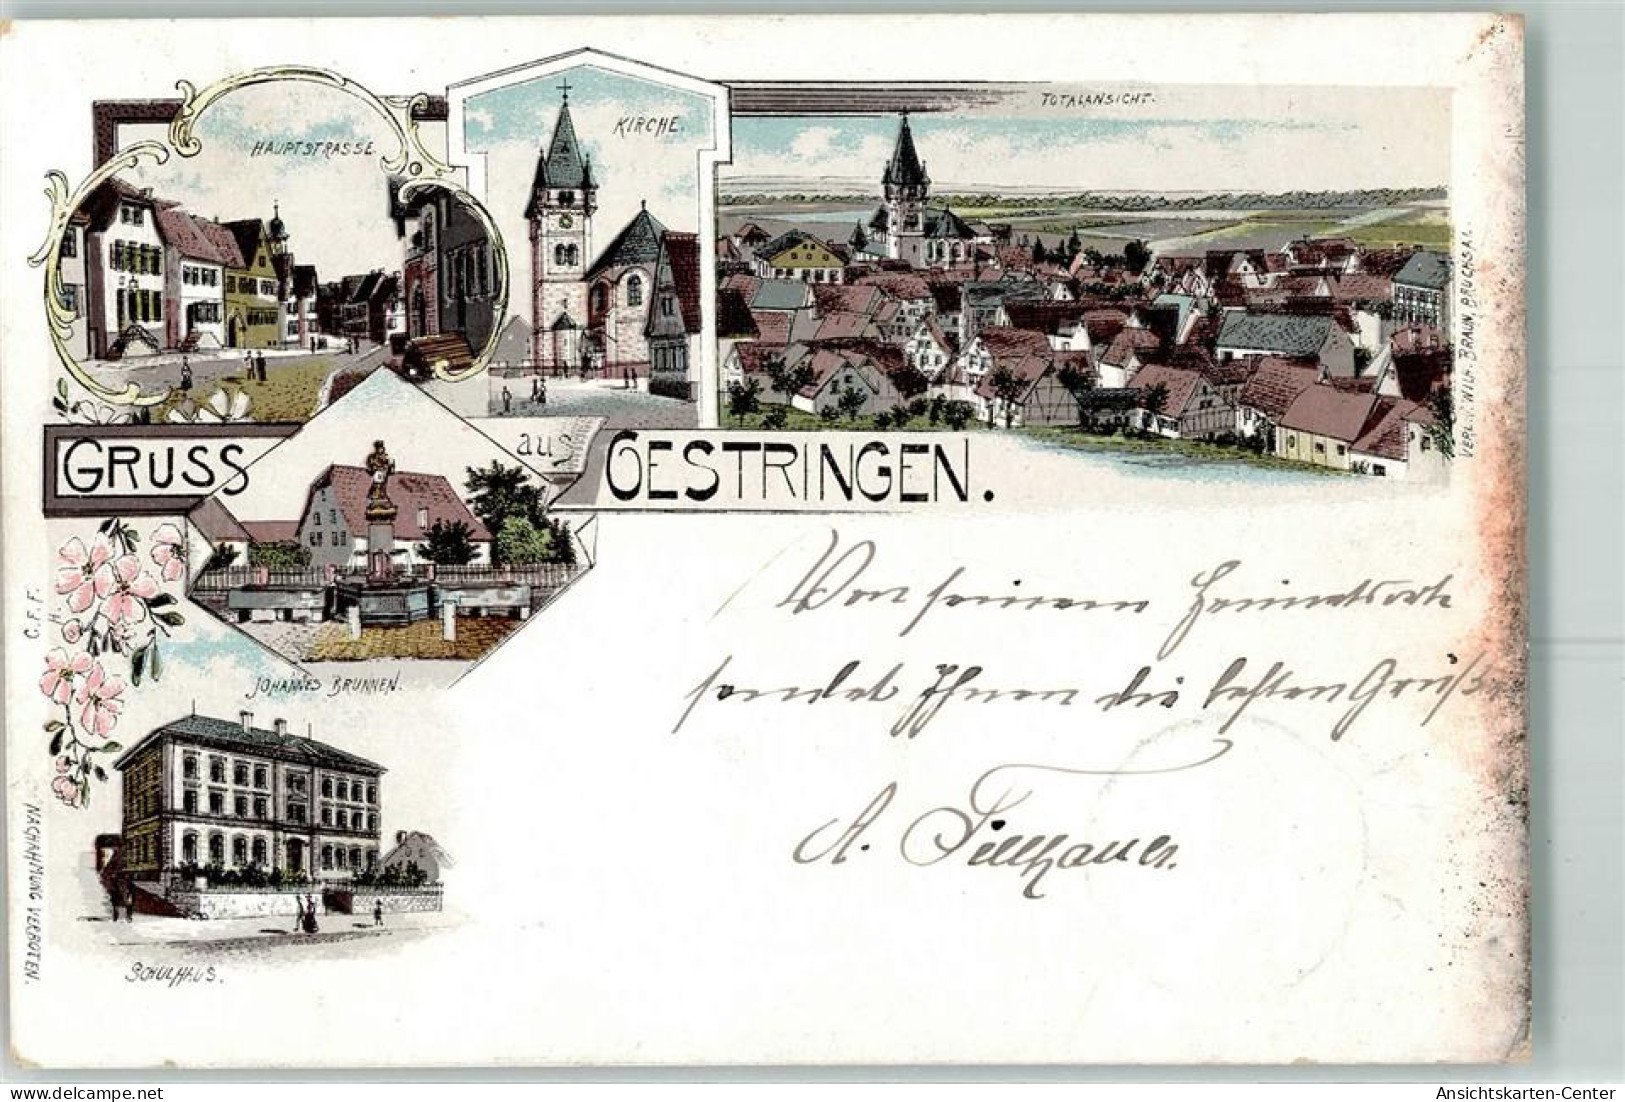 HAUPTSTRASSE.
KIRCHE.
TOTALANSICHT.
GRUSS aus OESTRINGEN.
JOHANNES BRUNNEN.
SCHULHAUS.
C. F. F.
H.
NACHAHMUNG VERBOTEN.
VERL. V. WILH. BRAUN, BRUCHSAL.
Von seinem Heimatsorte
sendet Ihnen die besten Grüße
A.
Ansichtskarten-Center